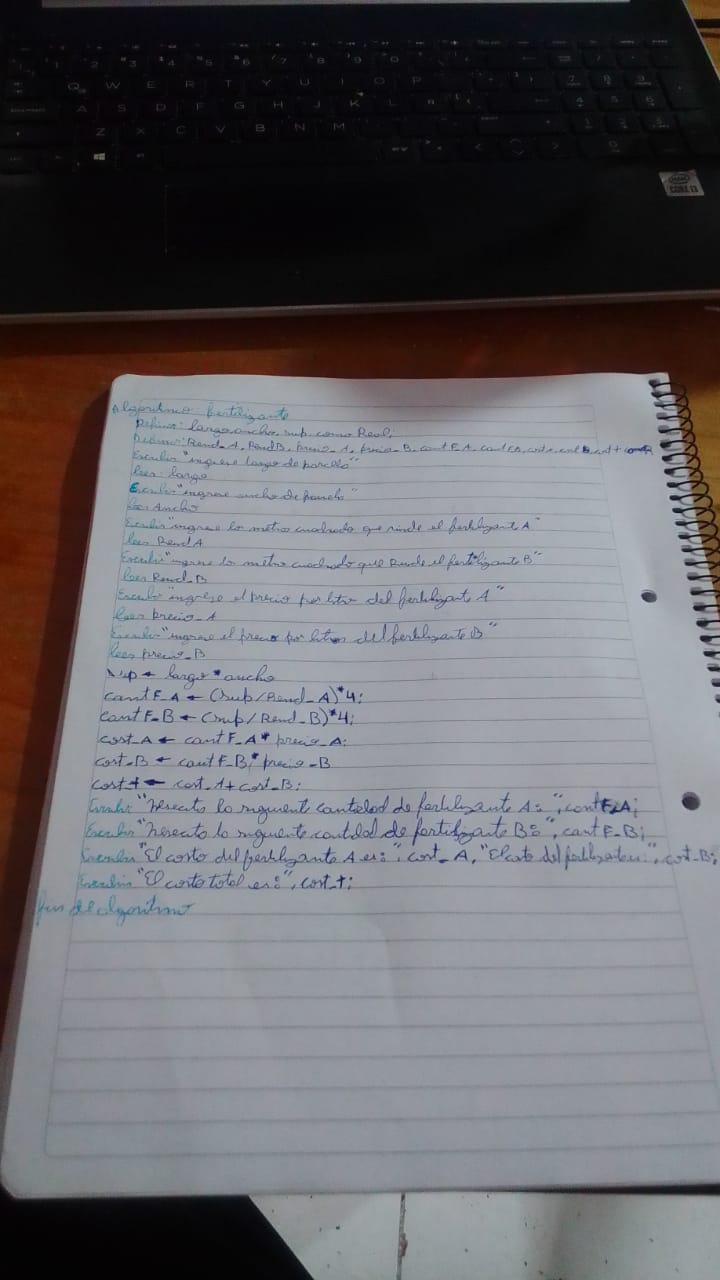 Q W E R T Y U I O P
A S D F G H J K L Ñ
Z X C V B N M
CORE i3
Algoritmo fertilizante
Definir: largo, ancho, sup como Real;
Definir: Rend_A, Rend B, precio_A, precio_B, cant F_A,
Escribir "ingrese largo de parcela"
leer largo
Escribir "ingrese ancho de parcela"
leer Ancho
Escribir "ingrese los metros cuadrado que rinde el fertilizante A"
leer Rend A
Escribir "ingrese los metros cuadrado que Rinde el fertilizante B"
leer Rend_B
Escribir "ingrese el precio por litro del fertilizante A"
leer precio_A
Escribir "ingrese el precio por litros del fertilizante B"
leer precio_B
sup ← largo * ancho
cant F_A ← (sup/Rend_A)*4;
cant F_B ← (sup/Rend_B)*4;
cost_A ← cant F_A * precio_A;
cost_B ← cant F_B * precio_B
cost_t ← cost_A + cost_B;
Escribir "Necesita la siguiente cantidad de fertilizante A: ", cant F_A;
Escribir "Necesita la siguiente cantidad de fertilizante B: ", cant F_B;
Escribir "El costo del fertilizante A es: ", cost_A, "El costo del es: ", cost_B;
Escribir "El costo total es: ", cost_t;
fin de algoritmo